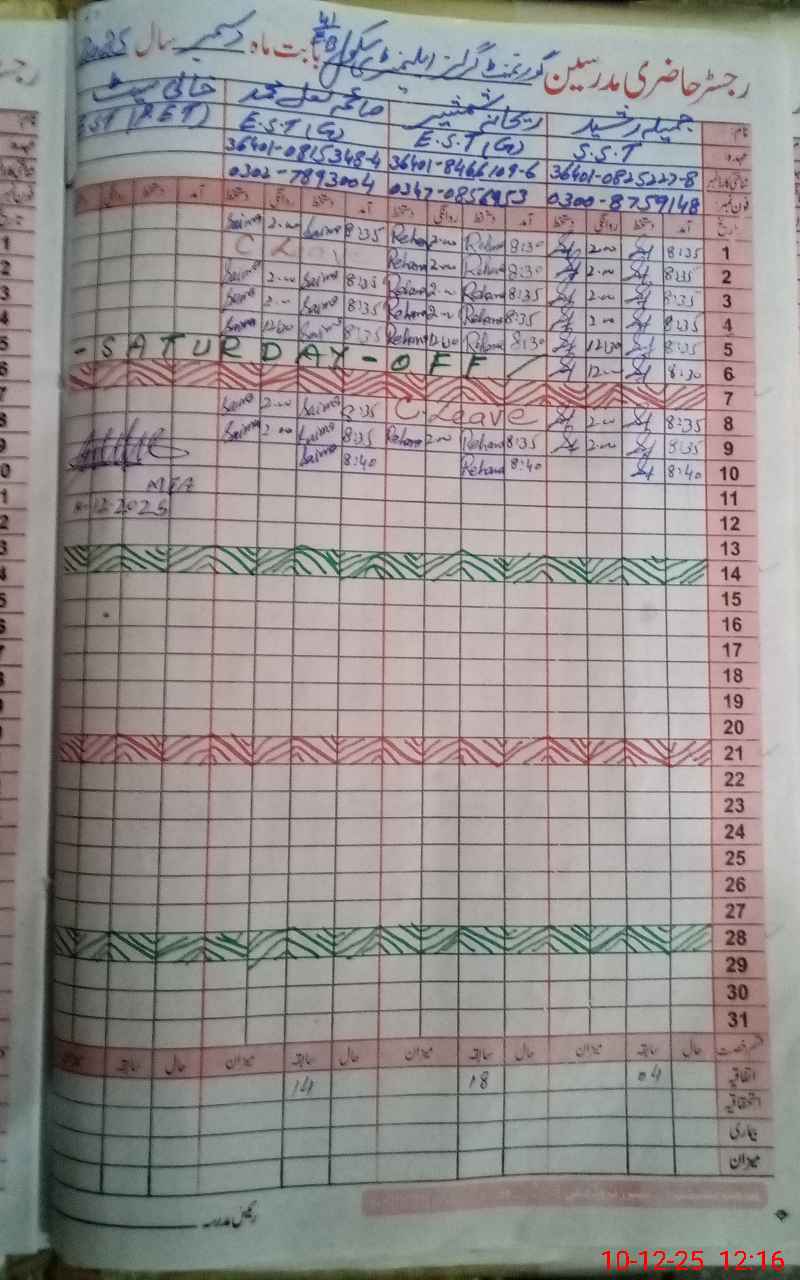 رجسٹر حاضری مدرسین گورنمنٹ گرلز ایلیمنٹری سکول 41/EB بابت ماہ دسمبر سال 2025
نام جمیلہ رشید ریحانہ شمشیر صائمہ لعل محمد خالی سیٹ
عہدہ S.S.T E.S.T (G) E.S.T (G) E.S.T (
شناختی کارڈ نمبر 36401-0825227-8 36401-8466109-6 36401-0815348-4
فون نمبر 0300-8759148 0347-0856953 0302-7893004
تاریخ آمد دستخط روانگی دستخط آمد دستخط روانگی دستخط آمد دستخط روانگی دستخط آمد دستخط روانگی
1 8:35 2:00 8:30 Rehana 2:00 Rehana 8:35 Saima 2:00 Saima
2 8:35 2:00 8:30 Rehana 2:00 Rehana C L
3 8:35 2:00 8:35 Rehana 2:00 Rehana 8:35 Saima 2:00 Saima
4 8:35 2:00 8:35 Rehana 2:00 Rehana 8:35 Saima 2:00 Saima
5 8:35 12:30 8:30 Rehana 12:30 Rehana 8:35 Saima 12:30 Saima
6 8:30 12:00 - SATURDAY - OFF
7
8 8:35 2:00 C Leave 8:35 Saima 2:00 Saima
9 8:35 2:00 8:35 Rehana 2:00 Rehana 8:35 Saima 2:00 Saima
10 8:40 8:40 Rehana 8:40 Saima
11 MEA
12 -12-2025
13
14
15
16
17
18
19
20
21
22
23
24
25
26
27
28
29
30
31
قسم رخصت حال سابقہ میزان حال سابقہ میزان حال سابقہ میزان حال سابقہ میزان
اتفاقیہ 04 18 14
استحقاقیہ
بیماری
میزان
رئیس مدرسہ
10-12-25 12:16